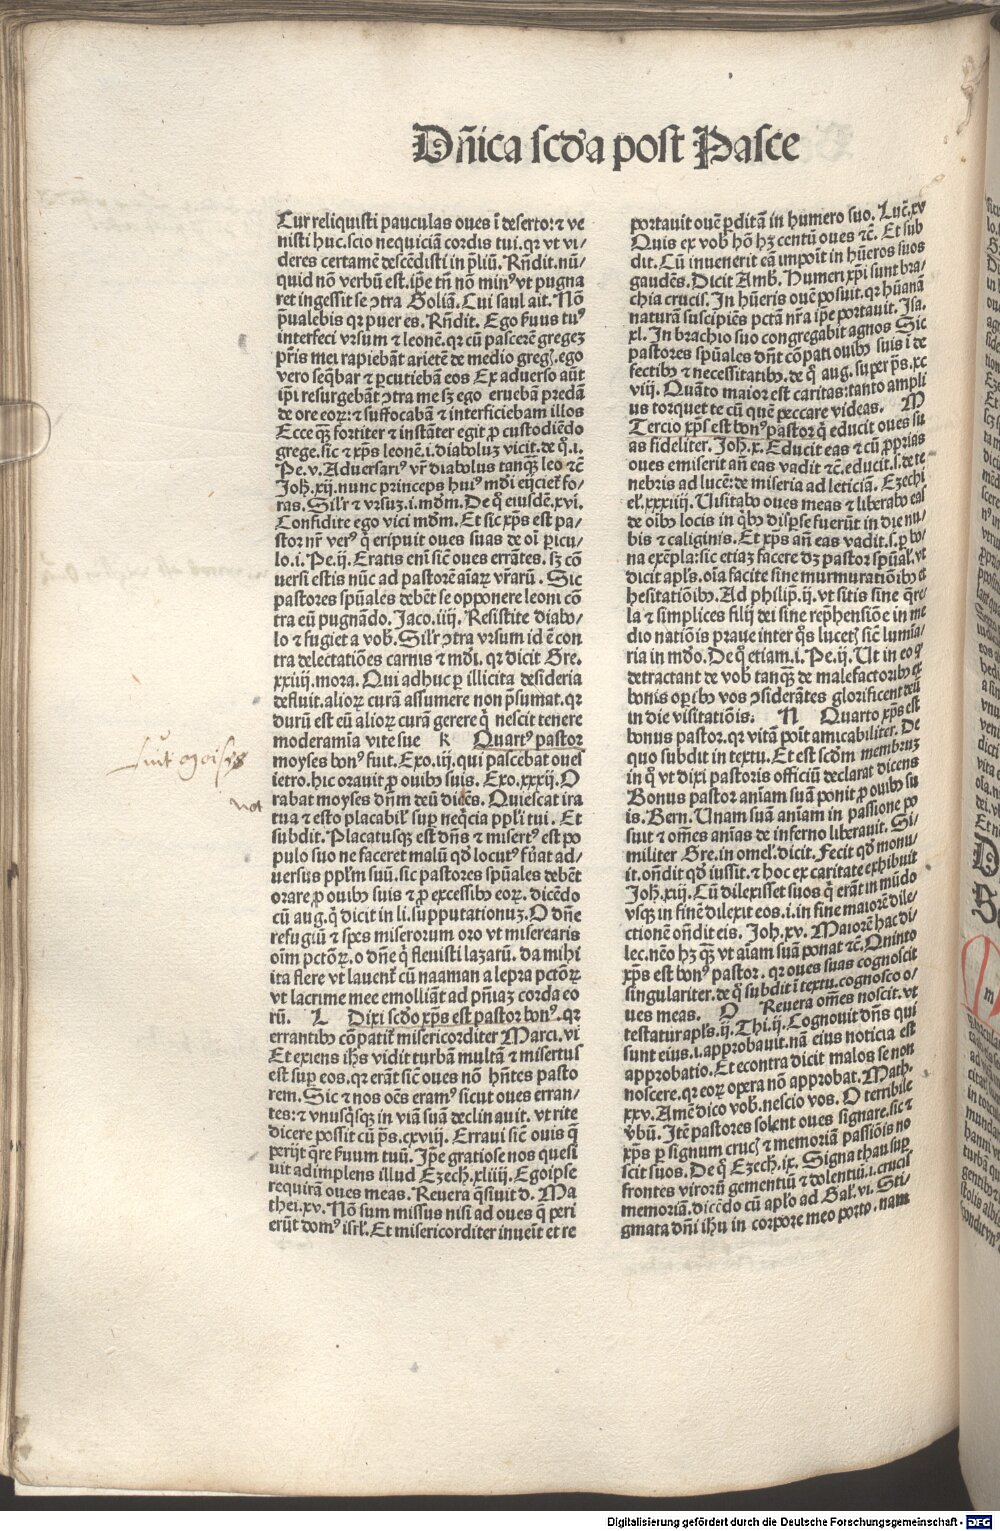 Dñica scd'a post Pasce
Cur reliquisti pauculas oues ī deserto: ⁊ ve
nisti huc. scio nequiciā cordis tui. qꝛ vt vi/
deres certamē descēdisti in p̄liū. Rñdit. nū/
quid nō verbū est. ip̄e tñ nō minꝰ vt pugna
ret ingessit se ꝯtra Goliā. Cui saul ait. Nō
p̄ualebis qꝛ puer es. Rñdit. Ego ẜuus tuꝰ
interfeci vrsum ⁊ leonē. qꝛ cū pascerē gregeʒ
pr̄is mei rapiebāt arietē de medio gregꝭ. ego
vero seq̄bar ⁊ ꝑcutiebā eos Ex aduerso aūt
ip̄i resurgebāt ꝯtra me sʒ ego eruebā predā
de ore eoꝝ: ⁊ suffocabā ⁊ interficiebam illos
Ecce qʒ fortiter ⁊ instāter egit ꝓ custodiēdo
grege. sic ⁊ xp̄s leonē. i. diaboluʒ vicit. de q̊. i.
Pe. v. Aduersariꝰ vr̄ diabolus tanqʒ leo ⁊c̄
Joh. xij. nunc princeps huiꝰ mūdi eijciet̄ fo/
ras. Silr̄ ⁊ vrsuʒ. i. mūdm. De q̊ eiusdē. xvi.
Confidite ego vici mūdm. Et sic xp̄s est pa/
stor nr̄ verꝰ q̇ eripuit oues suas de oī ꝑicu/
lo. i. Pe. ij. Eratis enī sic̄ oues errātes. sʒ cō
uersi estis nūc ad pastorē aīaꝝ vr̄arū. Sic
pastores spūales debēt se opponere leoni cō
tra eū pugnādo. Jaco. iiij. Resistite diabo/
lo ⁊ fugiet a vob̄. Silr̄ ꝯtra vrsum id ē con
tra delectatiōes carnis ⁊ mūdi. qꝛ dicit Gre.
xxiiij. mora. Qui adhuc ꝑ illicita desideria
defluit. alioꝝ curā assumere non p̄sumat. qꝛ
durū est eū alioꝝ curā gerere q̇ nescit tenere
moderamīa vite sue K Quartꝰ pastor
moyses bonꝰ fuit. Exo. iij. qui pascebat oues
ietro. hic orauit ꝓ ouibꝰ suis. Exo. xxxij. O
rabat moyses dñm deū dicēs. Quiescat ira
tua ⁊ esto placabil̄ sup̄ neq̄cia ppl̄i tui. Et
subdit. Placatusqʒ est dñs ⁊ misertꝰ est po
pulo suo ne faceret malū qd̄ locutꝰ fūat ad/
uersus ppl̄m suū. sic pastores spūales debēt
orare ꝓ ouibꝰ suis ⁊ ꝓ excessibꝰ eoꝝ. dicēdo
cū aug. q̇ dicit in li. supputationuʒ. O dñe
refugiū ⁊ spes miserorum oro vt miserearis
oīm pctōꝝ. o dñe q̇ fleuisti lazarū. da mihi
ita flere vt lauent̄ cū naaman a lepra pctōꝝ
vt lacrime mee emolliāt ad pn̄iaʒ corda eo
rū. L Dixi scd̄o xp̄s est pastor bonꝰ. qꝛ
errantibꝰ cōpatit̄ misericorditer Marci. vi
Et exiens ih̄s vidit turbā multā ⁊ misertus
est sup̄ eos. qꝛ erāt sic̄ oues nō hn̄tes pasto
rem. Sic ⁊ nos oēs eramꝰ sicut oues erran/
tes: ⁊ vnusq̇sqʒ in viā suā declinauit. vt rite
dicere possit cū ps̄. cxviij. Erraui sic̄ ouis q̄
perijt q̄re ẜuum tuū. Ip̄e gratiose nos quesi
uit adimplens illud Ezech̄. xliiij. Ego ipse
requirā oues meas. Reuera q̄siuit d. Ma
thei. xv. Nō sum missus nisi ad oues q̄ peri
erūt domꝰ isrl̄. Et misericorditer inueīt ⁊ re
portauit ouē ꝑditā in humero suo. Luc̄. xv
Quis ex vob̄ hō hʒ centū oues ⁊c̄. Et sub
dit. Cū inuenerit eā impoīt in hūeros suos
gaudēs. Dicit Amb̄. Humeri xp̄i sunt bra/
chia crucis. In hūeris ouē posuit. qꝛ hūanā
naturā suscipiēs pctā nr̄a ip̄e portauit. Isa.
xl. In brachio suo congregabit agnos Sic
pastores spūales dn̄t cōpati ouibꝰ suis ī de
fectibꝰ ⁊ necessitatibꝰ. de q̊ aug. super ps̄. xc
viij. Quāto maior est caritas: tanto ampli
us torquet te cū quē peccare videas. M
Tercio xp̄s est bonꝰ pastor q̇ educit oues su
as fideliter. Joh̄. x. Educit eas ⁊ cū ꝓprias
oues emiserit añ eas vadit ⁊c̄. educit. s. de te
nebris ad lucē: de miseria ad leticiā. Ezechi
el̄. xxxiiij. Uisitabo oues meas ⁊ liberabo eas
de oībꝰ locis in q̇bꝰ disp̄se fuerūt in die nu/
bis ⁊ caliginis. Et xp̄s añ eas vadit. s. ꝑ bo/
na exēpla: sic etiaʒ facere dʒ pastor spūal̄. vt
dicit apl̄s. oīa facite sine murmuratiōibꝰ et
hesitatiōibꝰ. Ad philip̄. ij. vt sitis sine q̄re/
la ⁊ simplices filij dei sine rep̄hensiōe in me
dio natiōis praue inter q̊s lucetꝭ sic̄ lumīa/
ria in mūdo. De q̊ etiam. i. Pe. ij. Ut in eo qꝰ
detractant de vob̄ tanqʒ de malefactoribꝰ ex
bonis oꝑibꝰ vos ꝯsiderātes glorificent deū
in die visitatiōis. N Quarto xp̄s est
bonus pastor. qꝛ vitā poīt amicabiliter. De
quo subdit in textu. Et est scd̄m membruʒ
in q̊ vt dixi pastoris officiū declarat dicens
Bonus pastor aīam suā ponit ꝓ ouibꝰ su
is. Bern. Unam suā aīam in passione po
suit ⁊ om̄es aīas de inferno liberauit. Si/
militer Gre. in omel̄. dicit. Fecit qd̄ monu/
it. oñdit qd̄ iussit. ⁊ hoc ex caritate exhibuit
Joh̄. xiij. Cū dilexisset suos q̇ erāt in mūdo
vsqʒ in finē dilexit eos. i. in fine maiorē dile/
ctionē oñdit eis. Joh̄. xv. Maiorē hac di/
lec. nēo hʒ qʒ vt aīam suā ponat ⁊c̄. Qninto
xp̄s est bonꝰ pastor. qꝛ oues suas cognoscit
singulariter. de q̊ subdit ī textu. cognosco o/
ues meas. O Reuera om̄es noscit. vt
testatur apl̄s. ij. Thi. ij. Cognouit dñs qui
sunt eius. i. approbauit. nā eius noticia est
approbatio. Et econtra dicit malos se non
noscere. qꝛ eoꝝ opera nō approbat. Math̄.
xxv. Amē dico vob̄. nescio vos. O terribile
v̄bū. Itē pastores solent oues signare. sic ⁊
xp̄s ꝑ signum crucꝭ ⁊ memoriā passiōis no
scit suos. De q̊ Ezech̄. ix. Signa thau sup̄
frontes virorū gementiū ⁊ dolentiū. i. crucis
memoriā. dicēdo cū apl̄o ad Gal̄. vi. Sti/
gmata dñi ih̄u in corpore meo porto. nam
fuit moises
not
Digitalisierung gefördert durch die Deutsche Forschungsgemeinschaft - DFG